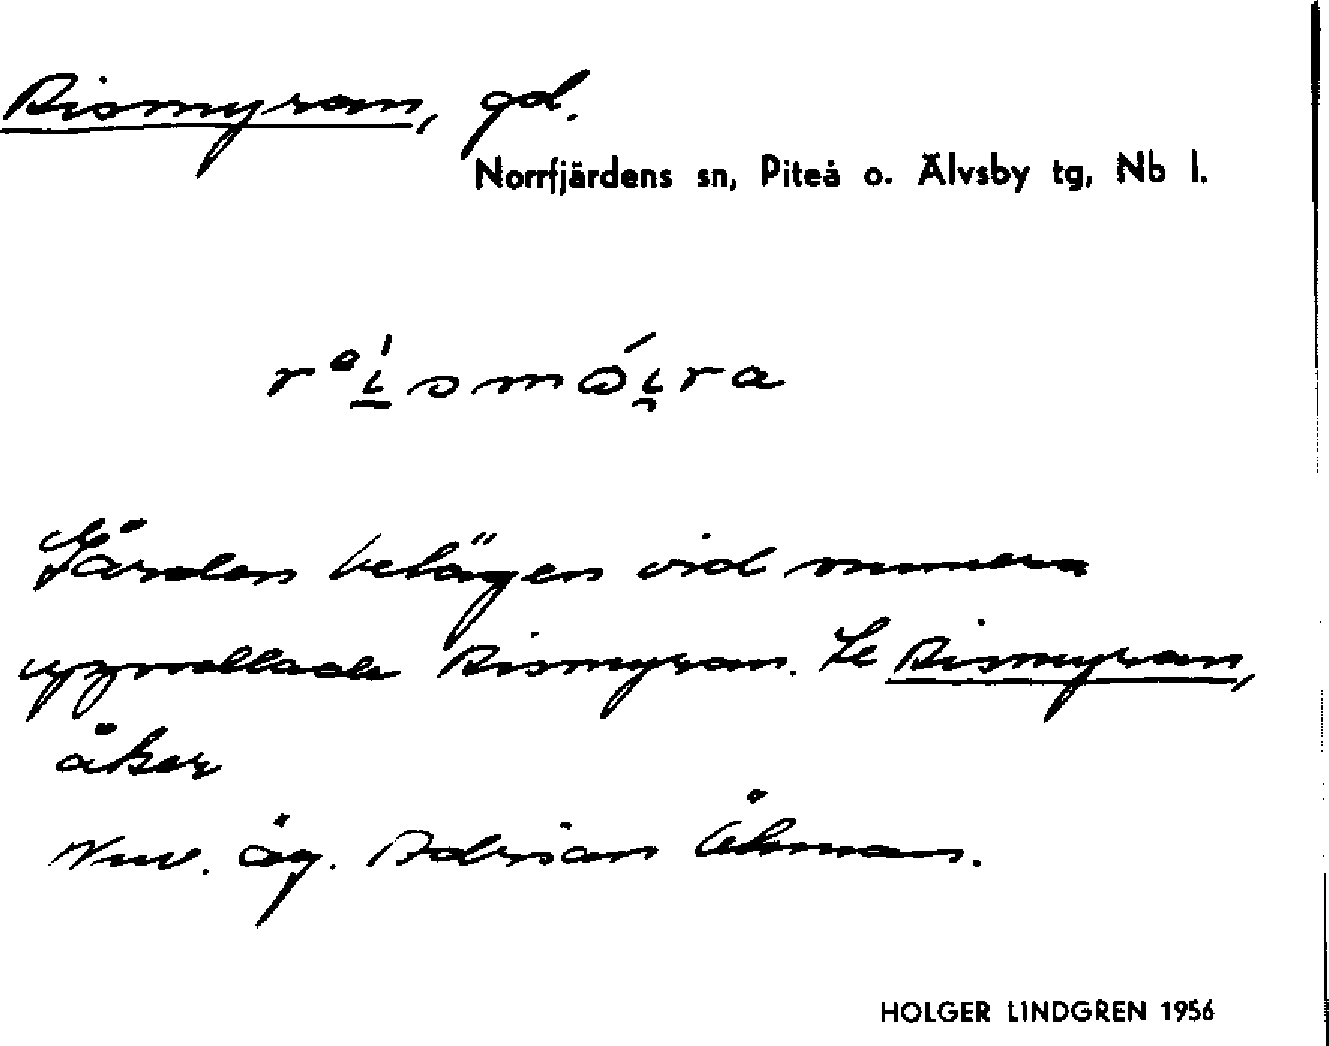 Rismyran, gd.
Norrfjärdens sn, Piteå o. Älvsby tg, Nb l.
Gården belägen vid numera
uppodlade Rismyran. Se Rismyran,
åker
Nuv. äg. Adrian Åhman.
HOLGER LINDGREN 1956